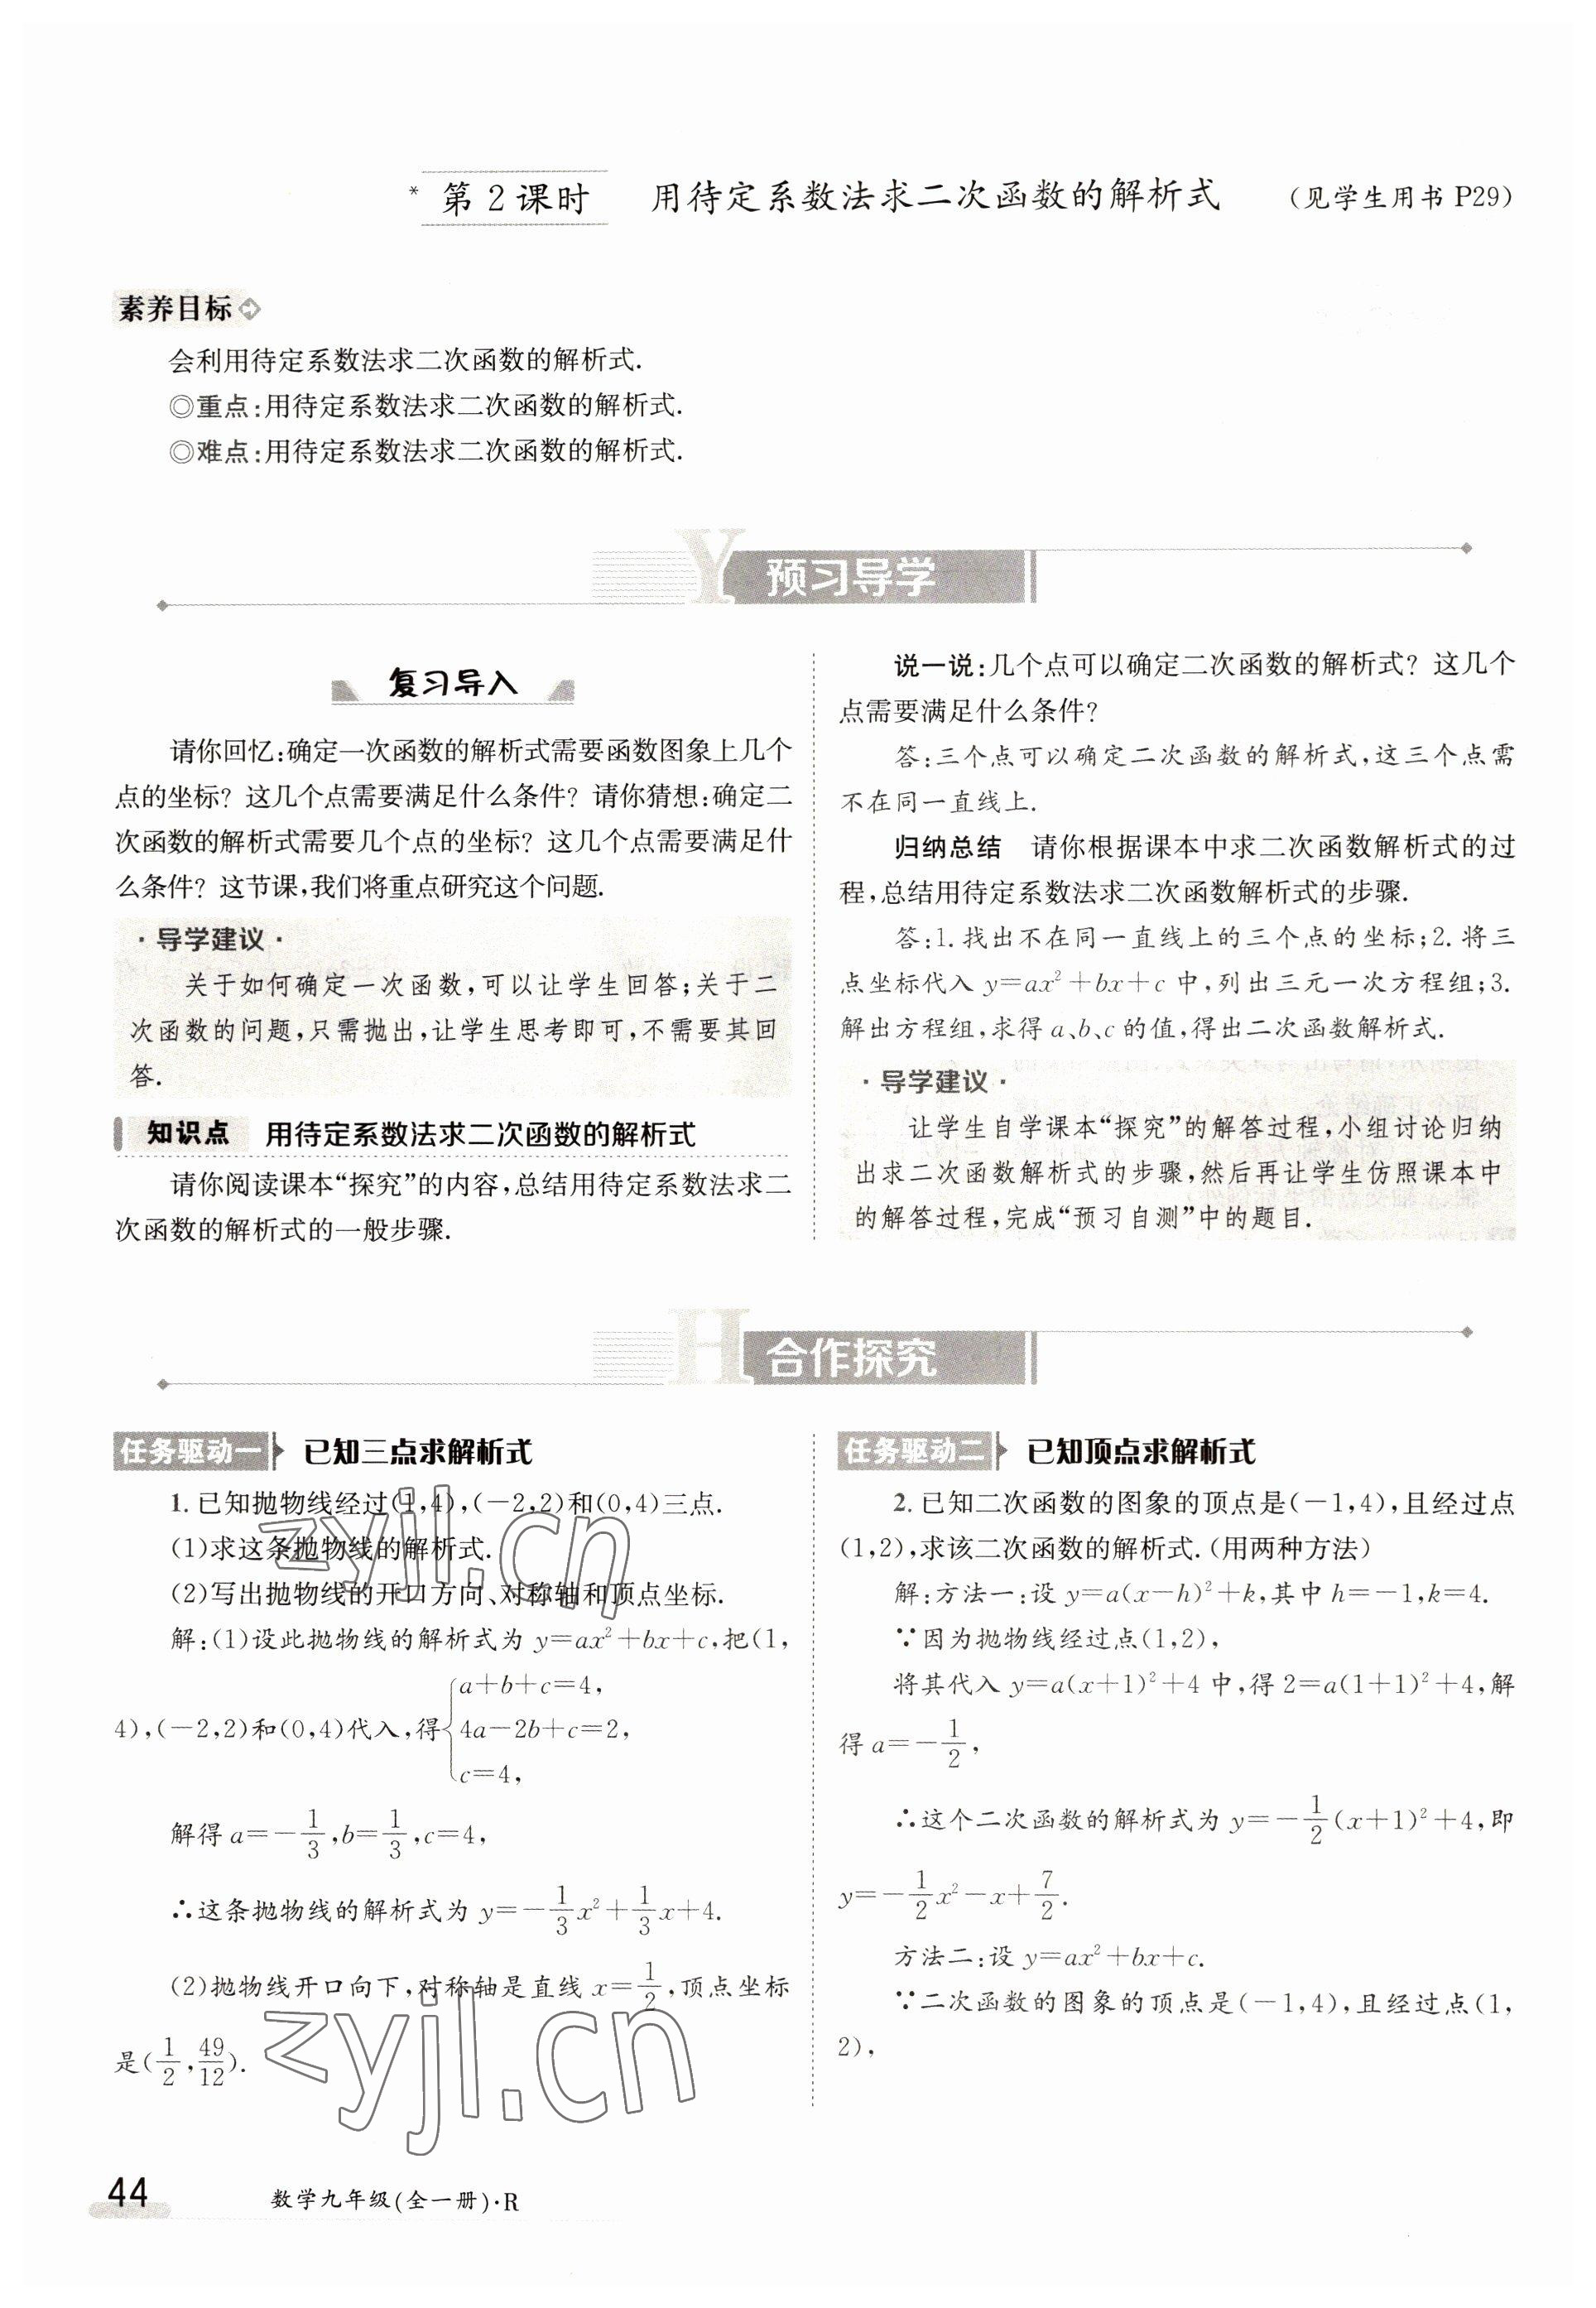 *第2课时 用待定系数法求二次函数的解析式 (见学生用书 P29)
素养目标
会利用待定系数法求二次函数的解析式.
◎重点:用待定系数法求二次函数的解析式.
◎难点:用待定系数法求二次函数的解析式.
Y 预习导学
复习导入
请你回忆:确定一次函数的解析式需要函数图象上几个
点的坐标? 这几个点需要满足什么条件? 请你猜想:确定二
次函数的解析式需要几个点的坐标? 这几个点需要满足什
么条件? 这节课,我们将重点研究这个问题.
·导学建议·
关于如何确定一次函数,可以让学生回答;关于二
次函数的问题,只需抛出,让学生思考即可,不需要其回
答.
知识点 用待定系数法求二次函数的解析式
请你阅读课本“探究”的内容,总结用待定系数法求二
次函数的解析式的一般步骤.
说一说:几个点可以确定二次函数的解析式? 这几个
点需要满足什么条件?
答:三个点可以确定二次函数的解析式,这三个点需
不在同一直线上.
归纳总结 请你根据课本中求二次函数解析式的过
程,总结用待定系数法求二次函数解析式的步骤.
答:1. 找出不在同一直线上的三个点的坐标;2. 将三
点坐标代入 y=ax²+bx+c 中,列出三元一次方程组;3.
解出方程组,求得 a、b、c 的值,得出二次函数解析式.
·导学建议·
让学生自学课本“探究”的解答过程,小组讨论归纳
出求二次函数解析式的步骤,然后再让学生仿照课本中
的解答过程,完成“预习自测”中的题目.
H 合作探究
任务驱动一 已知三点求解析式
1. 已知抛物线经过(1,4),(−2,2)和(0,4)三点.
(1)求这条抛物线的解析式.
(2)写出抛物线的开口方向、对称轴和顶点坐标.
解:(1)设此抛物线的解析式为 y=ax²+bx+c,把(1,
4),(−2,2)和(0,4)代入,得{a+b+c=4,
4a−2b+c=2,
c=4,
解得 a=−1/3,b=1/3,c=4,
∴这条抛物线的解析式为 y=−1/3x²+1/3x+4.
(2)抛物线开口向下,对称轴是直线 x=1/2,顶点坐标
是(1/2,49/12).
任务驱动二 已知顶点求解析式
2. 已知二次函数的图象的顶点是(−1,4),且经过点
(1,2),求该二次函数的解析式.(用两种方法)
解:方法一:设 y=a(x−h)²+k,其中 h=−1,k=4.
∵因为抛物线经过点(1,2),
将其代入 y=a(x+1)²+4 中,得 2=a(1+1)²+4,解
得 a=−1/2,
∴这个二次函数的解析式为 y=−1/2(x+1)²+4,即
y=−1/2x²−x+7/2.
方法二:设 y=ax²+bx+c.
∵二次函数的图象的顶点是(−1,4),且经过点(1,
2),
zyjl.cn
zyjl.cn
44 数学九年级(全一册)·R